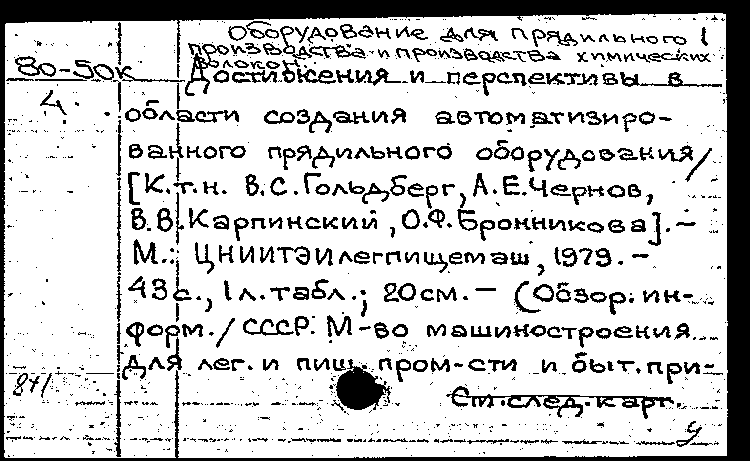 Оборудование для прядильного 1
производства и производства химических
волокон.
80-50к Достижения и перспективы в
4. области создания автоматизиро-
ванного прядильного оборудования/
[К.т.н. В.С.Гольдберг, А.Е.Чернов,
В.В.Карпинский, О.Ф.Бронникова]. –
М.: ЦНИИТЭИлегпищемаш, 1979. –
43с., 1л.табл.; 20см. – (Обзор. ин-
форм. / СССР. М-во машиностроения
для лег. и пищ. пром-сти и быт. при-
См.след.карт.